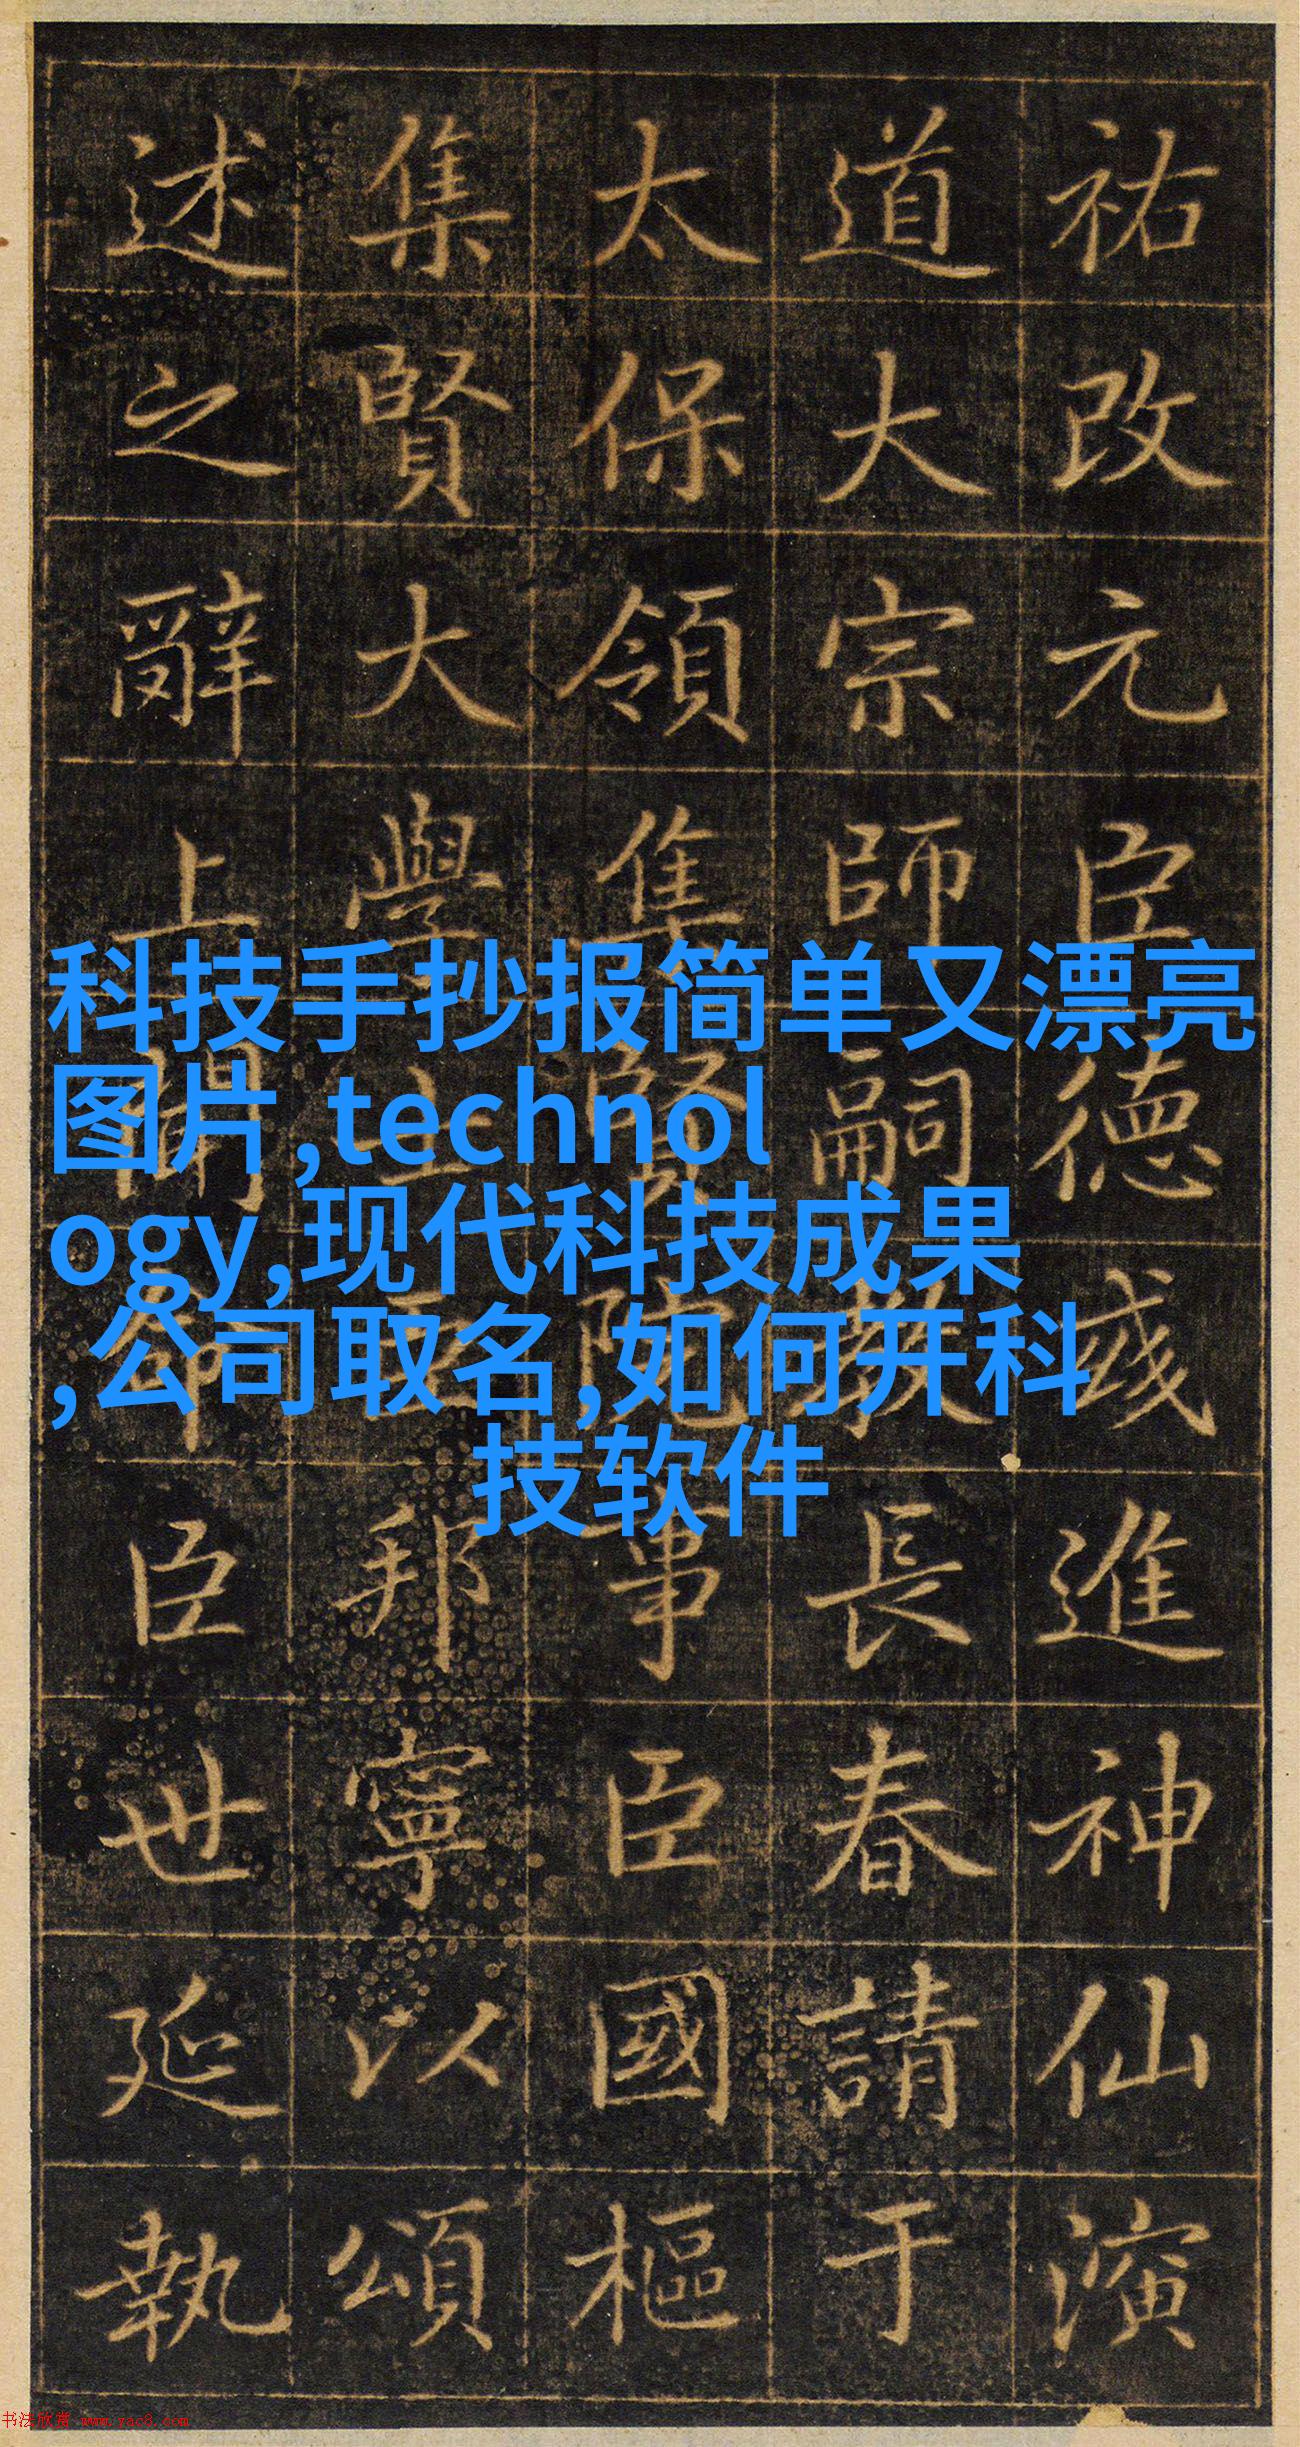 祐改元臣德彧進神仙演
道大宗師嗣教長春請于
太保領集賢院事臣國樞
集賢大學士臣邦寧以頌
述之辭上聞命臣世延執
科技手抄报简单又漂亮
图片,technol
ogy,现代科技成果
,公司取名,如何开科
技软件
书法欣赏 www.yac8.com